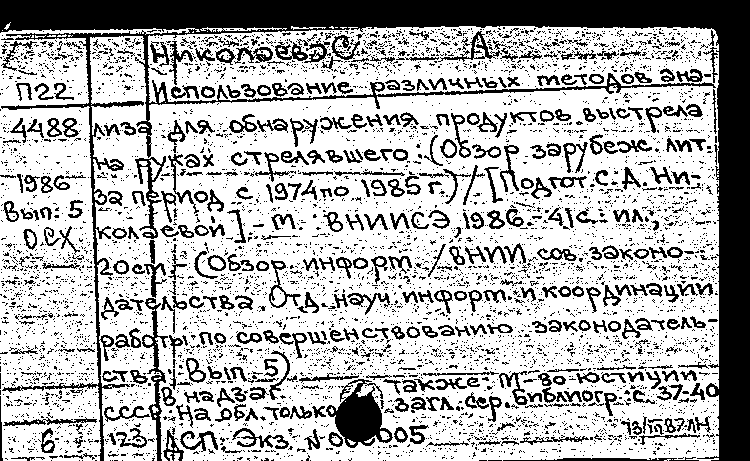 Николаева, С A
П22 Использование различных методов ана-
4488 лиза для обнаружения продуктов выстрела
на руках стрелявшего: (Обзор зарубеж. лит.
1986 за период с 1974 по 1985 г.) / [Подгот. С. А. Ни-
Вып: 5 колаевой]. - М. : ВНИИСЭ, 1986. - 41 с. : ил.;
ОСХ
20 см. - (Обзор. информ. / ВНИИ сов. законо-
дательства. Отд. науч. информ. и координации
работы по совершенствованию законодатель-
ства; Вып. 5)
В надзаг. также: М-во юстиции
СССР. На обл. только загл. сер. Библиогр.: с. 37-40
6 123 ДСП. Экз. N 000005 13/III 87 ЛН